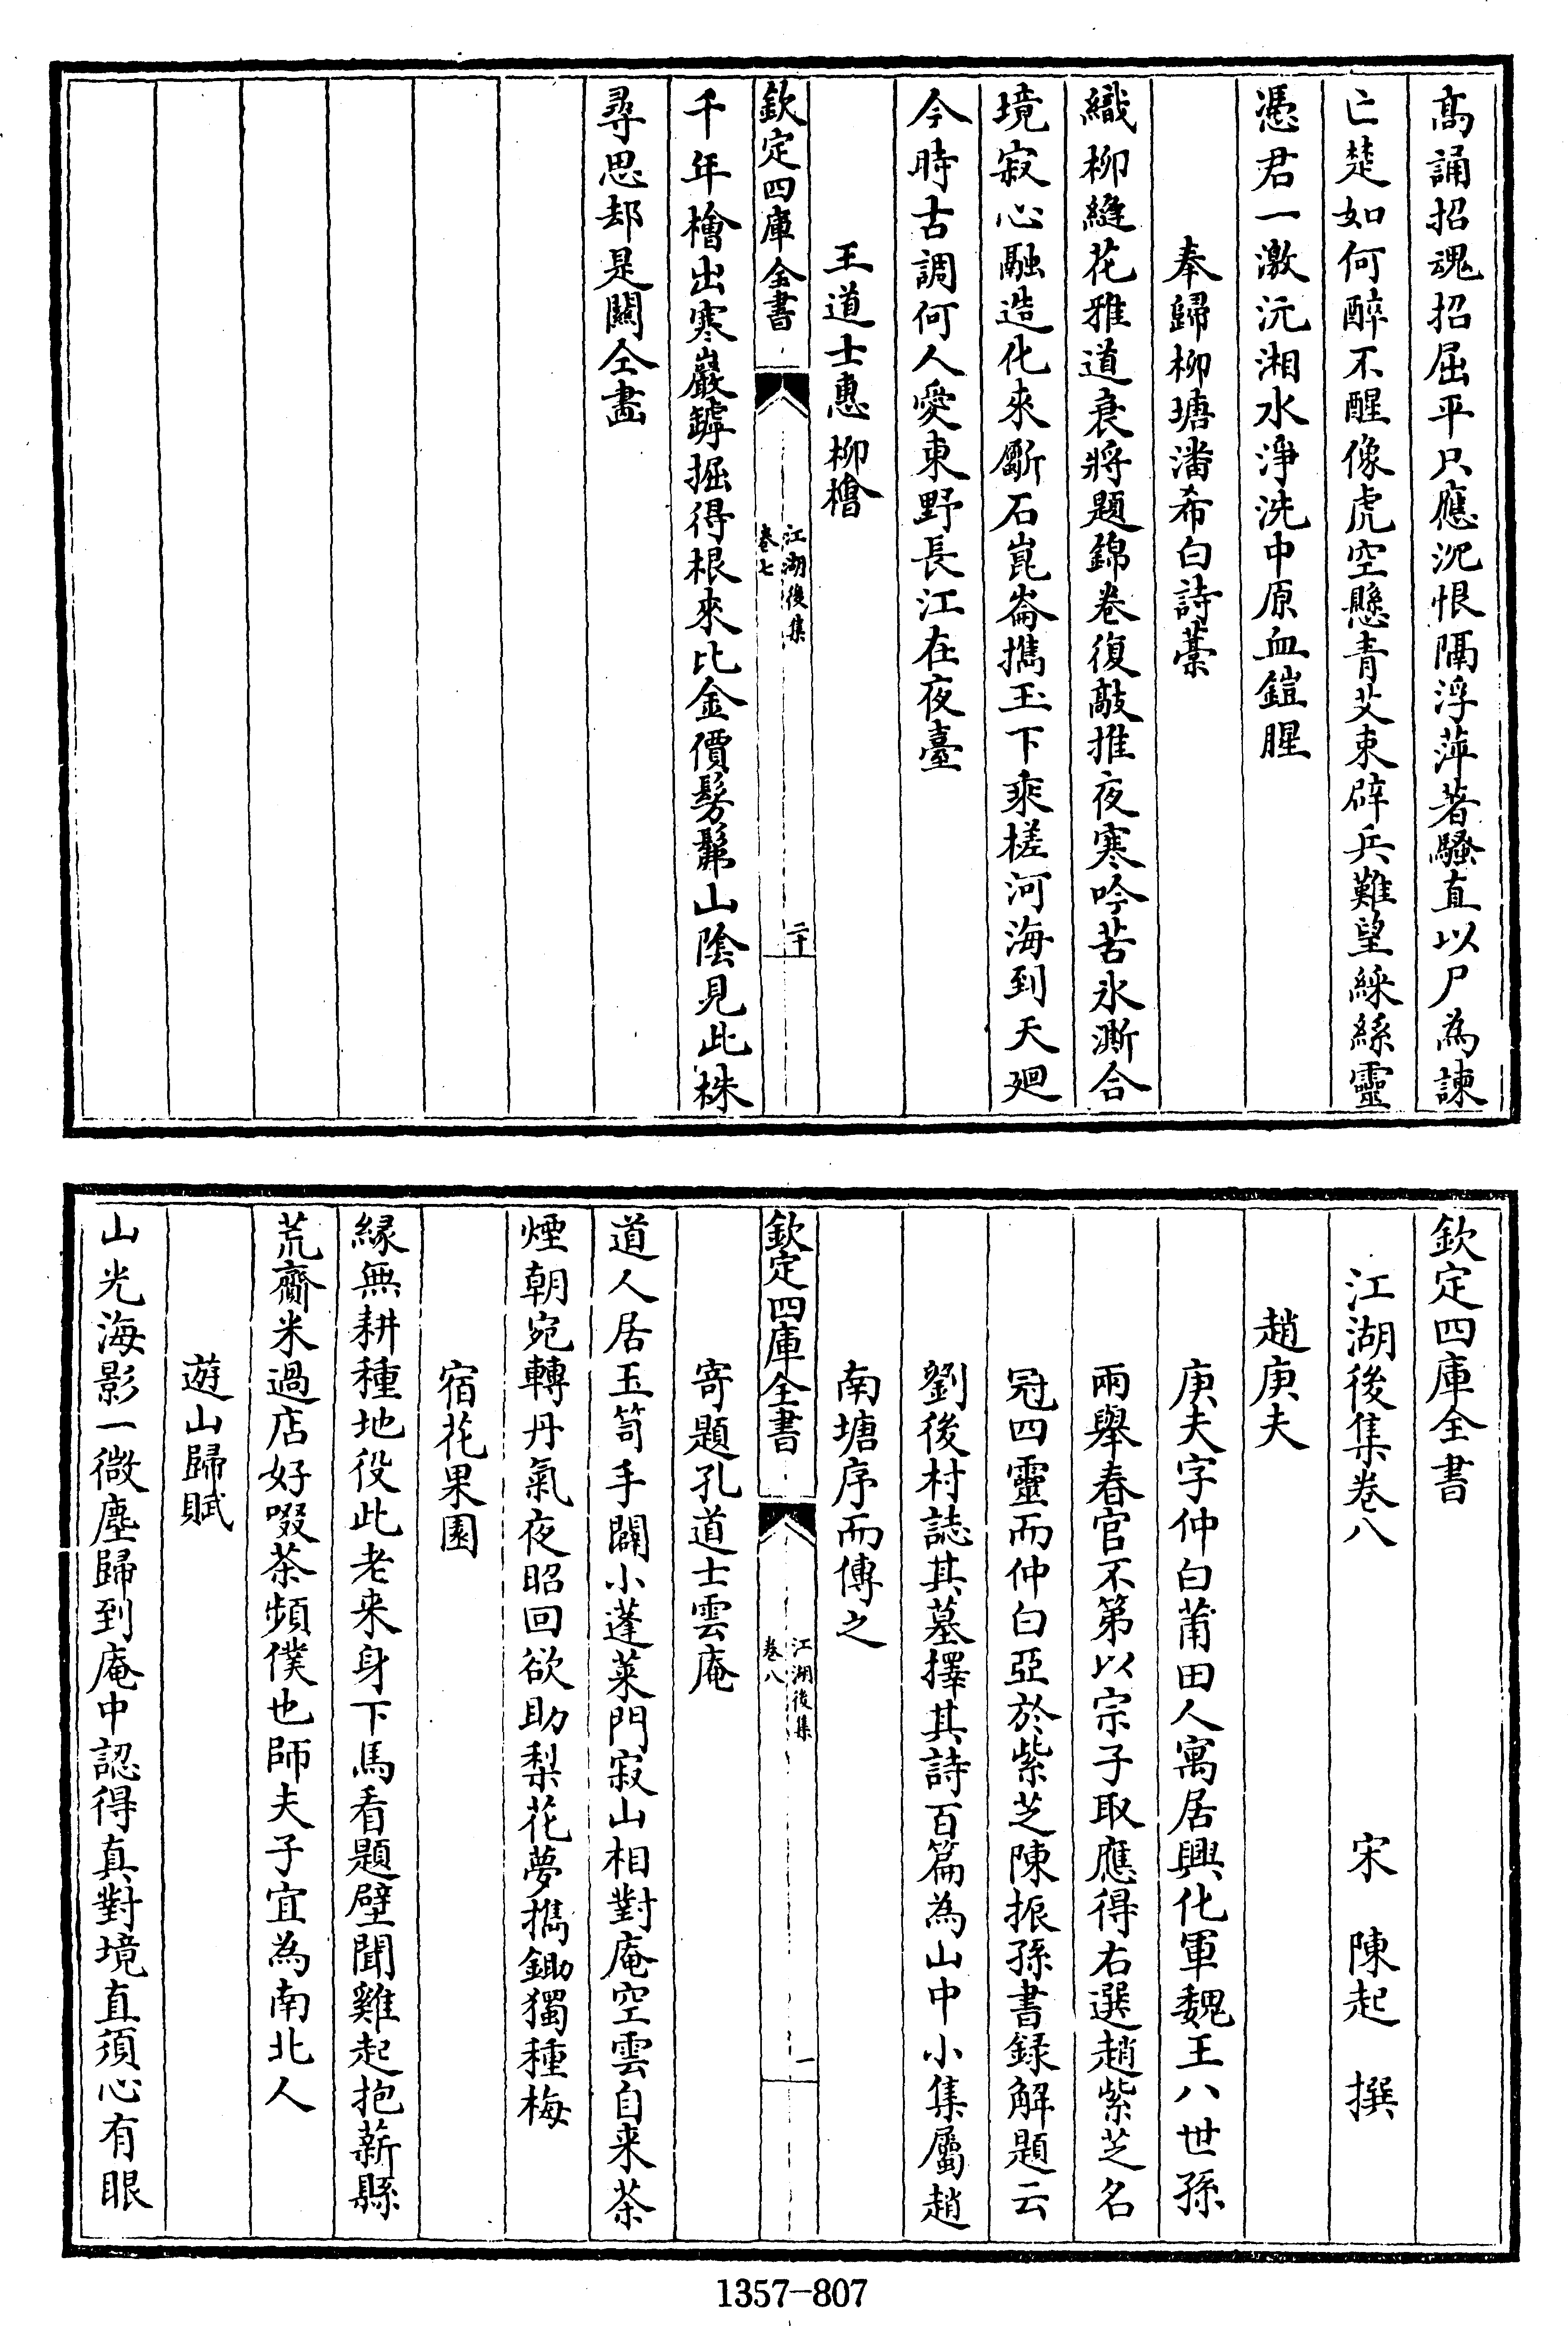 高誦招魂招屈平只應沉恨隔浮萍著騷直以尸為諫
亡楚如何醉不醒像虎空懸青艾束辟兵難望綵絲靈
憑君一激沅湘水淨洗中原血鎧腥
奉歸柳塘潘希白詩藁
織柳縫花雅道衰將題錦卷復敲推夜寒吟苦氷澌合
境寂心融造化來斸石崑崙攜玉下乘槎河海到天廻
今時古調何人愛東野長江在夜臺
王道士惠柳檜
欽定四庫全書
江湖後集
卷七
二十
千年檜出寒巖罅掘得根來比金價髣髴山陰見此株
尋思却是關仝畵
欽定四庫全書
江湖後集卷八
宋 陳起 撰
趙庚夫
庚夫字仲白莆田人寓居興化軍魏王八世孫
兩舉春官不第以宗子取應得右選趙紫芝名
冠四靈而仲白亞於紫芝陳振孫書録解題云
劉後村誌其墓擇其詩百篇為山中小集屬趙
南塘序而傳之
欽定四庫全書
江湖後集
卷八
一
寄題孔道士雲庵
道人居玉笥手闢小蓬萊門寂山相對庵空雲自来茶
煙朝宛轉丹氣夜昭回欲助梨花夢攜鋤獨種梅
宿花果園
縁無耕種地役此老来身下馬看題壁聞雞起抱薪縣
荒齎米過店好啜茶頻僕也師夫子宜為南北人
遊山歸賦
山光海影一微塵歸到庵中認得真對境直須心有眼
1357-807